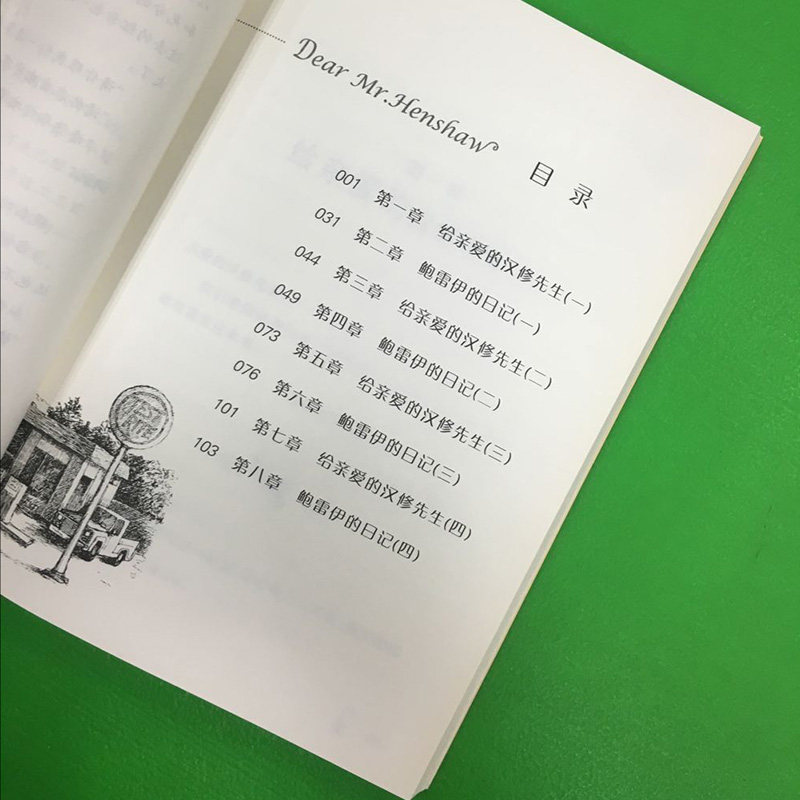 Dear Mr.Henshaw
目 录
001 第一章 给亲爱的汉修先生(一)
031 第二章 鲍雷伊的日记(一)
044 第三章 给亲爱的汉修先生(二)
049 第四章 鲍雷伊的日记(二)
073 第五章 给亲爱的汉修先生(三)
076 第六章 鲍雷伊的日记(三)
101 第七章 给亲爱的汉修先生(四)
103 第八章 鲍雷伊的日记(四)